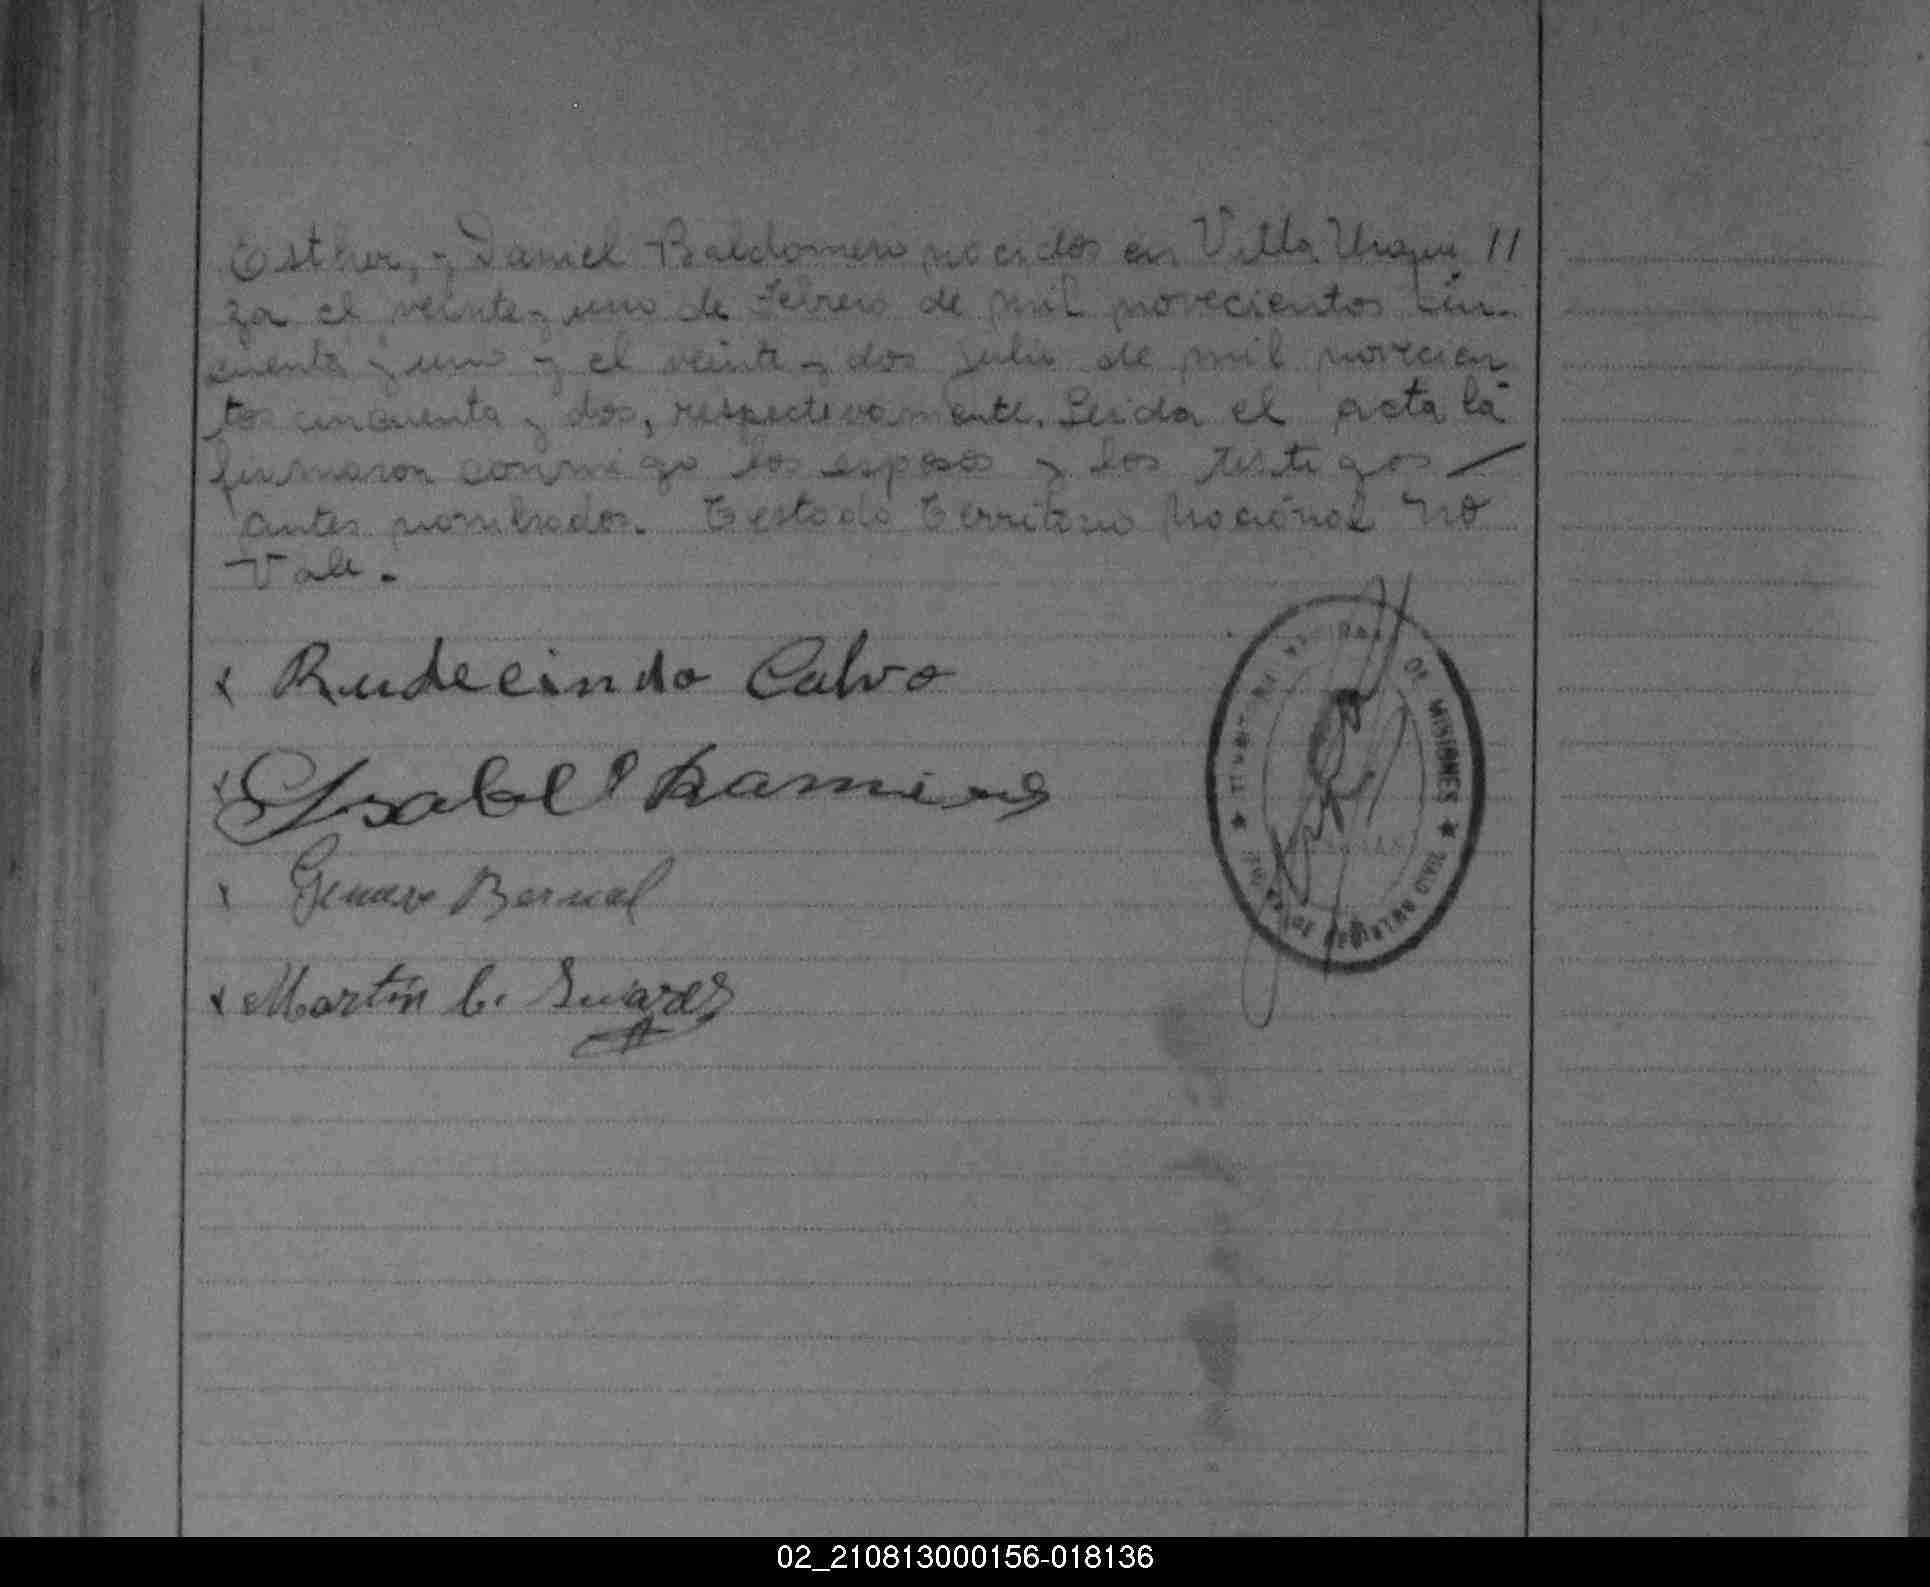 Esther, y Daniel Baldomero nacidos en Villa Urqui //
za el veinte y uno de Febrero de mil novecientos cin-
cuenta y uno y el veinte y dos julio de mil novecien
tos cincuenta y dos, respectivamente. Leida el acta la
firmaron conmigo los esposos y los testigos —
antes nombrados. Testado Territorio Nacional no
Vale.
x Rudecindo Calvo
x Ysabel Ramires
x Genaro Bernal
x Martín C. Suarez
DE MISIONES
REGISTRO CIVIL
02_210813000156-018136